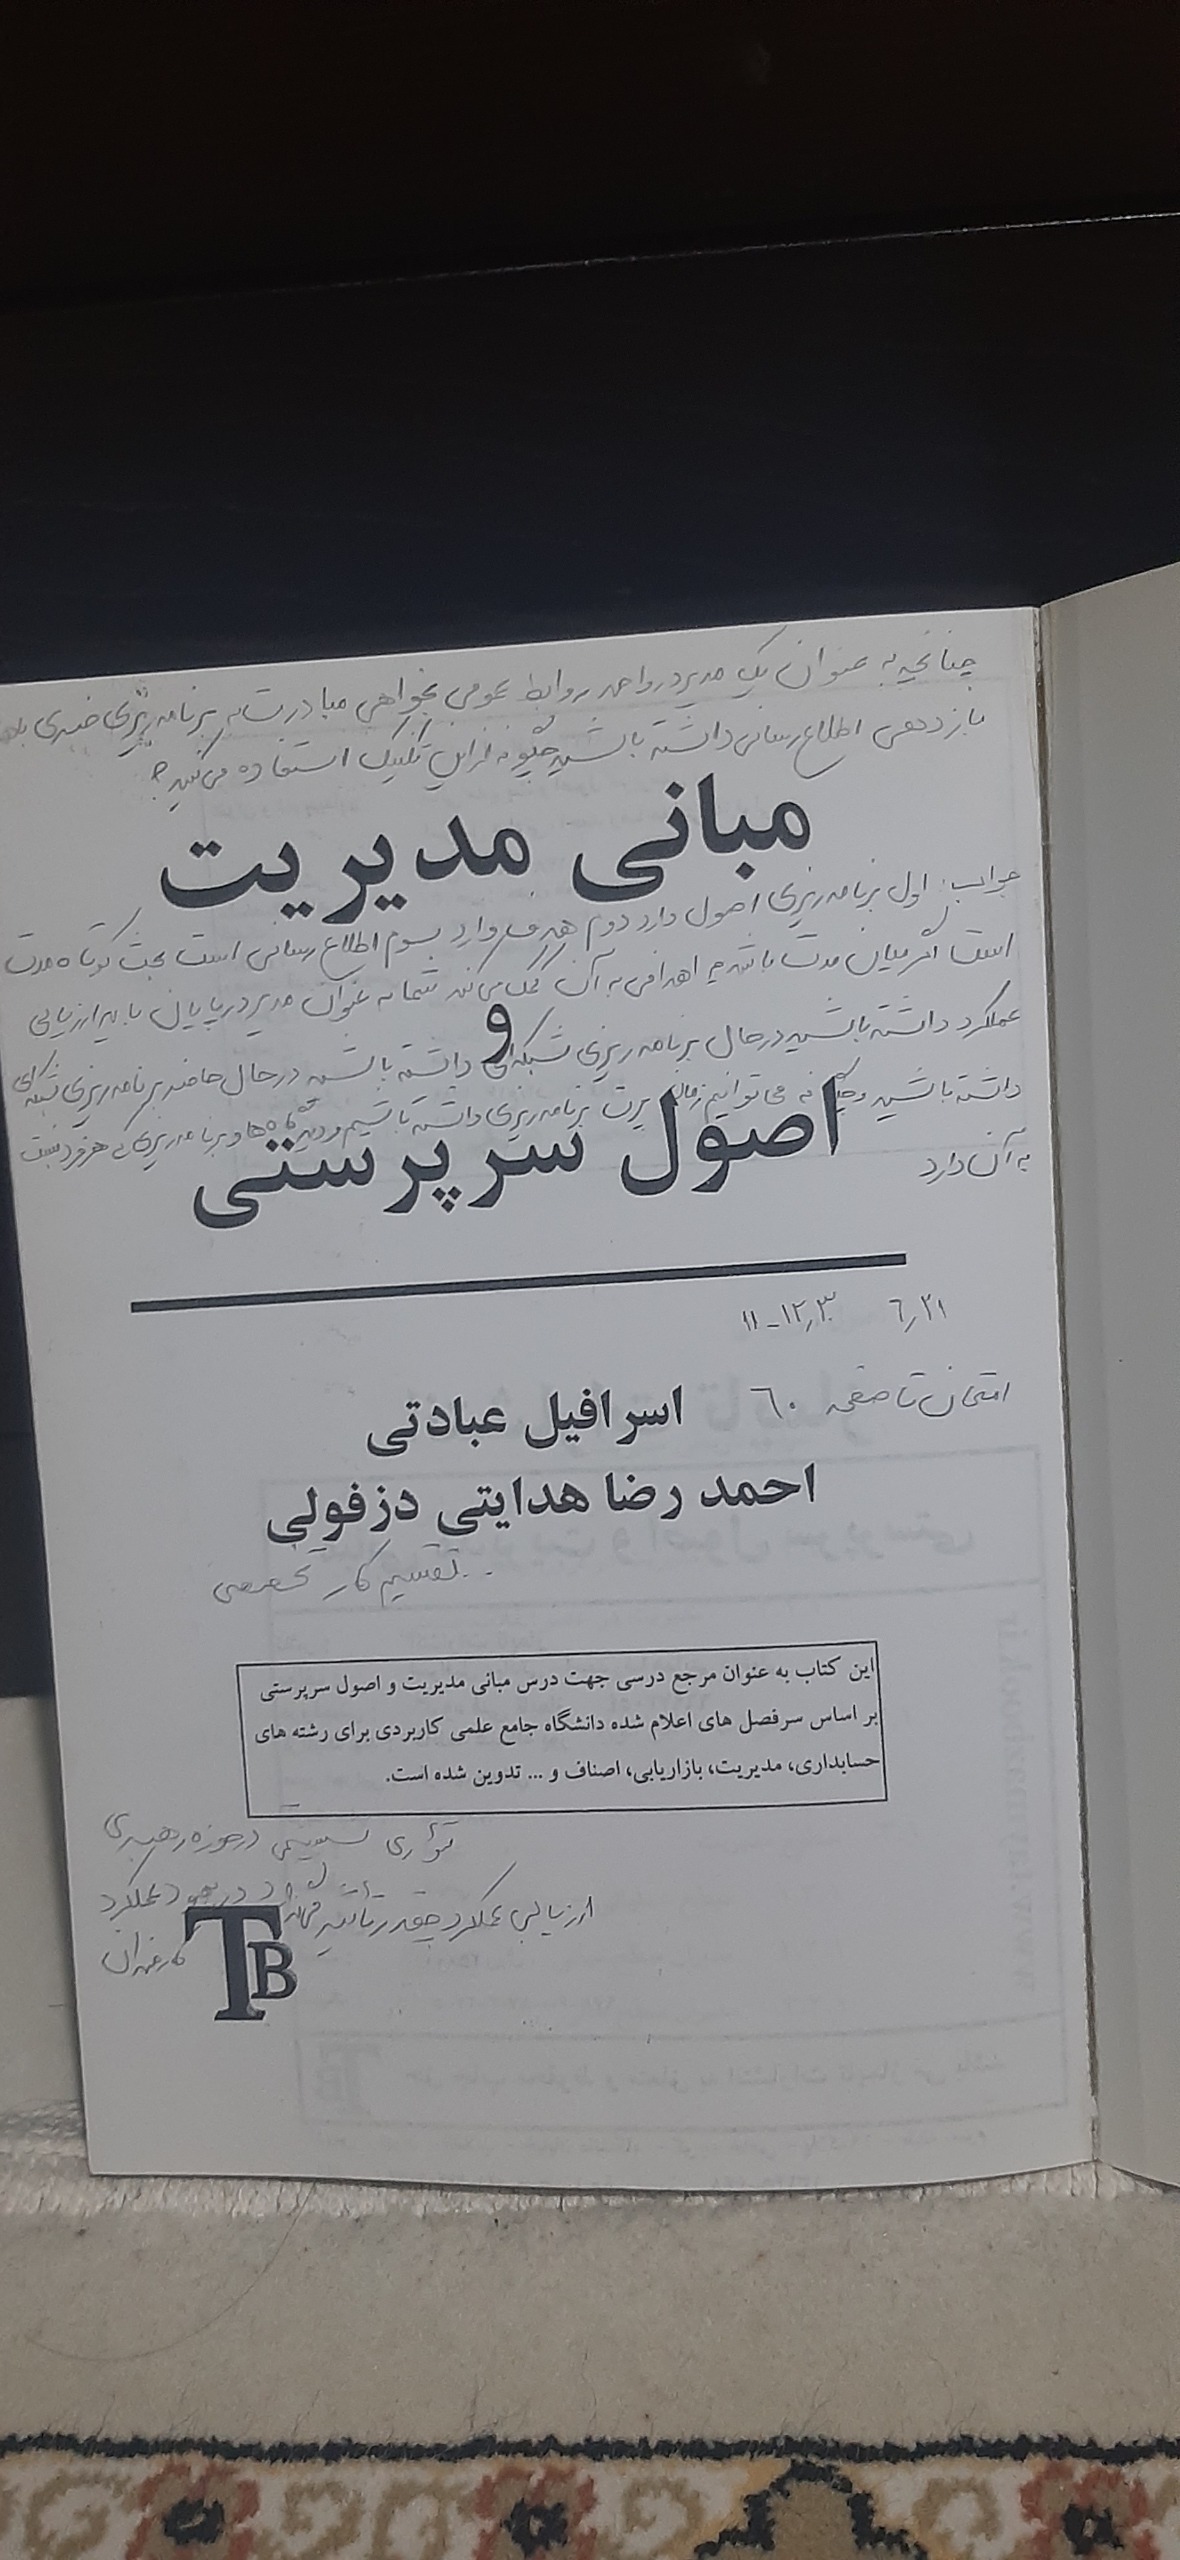 چنانچه به عنوان یک مدیر در واحد روابط عمومی بخواهی مبادرت به برنامه ریزی خبری با
بازدهی اطلاع رسانی داشته باشید چگونه از این تکنیک استفاده می‌کنید؟
مبانی مدیریت
جواب: اول برنامه ریزی اصول دارد دوم هدف دارد سوم اطلاع رسانی است بحث کوتاه مدت
است اگر میان مدت باشد چه اهدافی به آن کمک می‌کند شما به عنوان مدیر در پایان باید ارزیابی
و
عملکرد داشته باشید در حال برنامه ریزی شبکه‌ای داشته باشید در حال حاضر برنامه ریزی شبکه‌ای
داشته باشید و چگونه می توانیم زمان پرت برنامه ریزی داشته باشیم و دیدگاه‌ها و برنامه ریزی که هر فرد نسبت
به آن دارد
اصول سرپرستی
۶٫۲۱ ۱۱-۱۲٫۳۰
امتحان تا صفحه ۶۰
اسرافیل عبادتی
احمد رضا هدایتی دزفولی
تقسیم کار تخصصی
این کتاب به عنوان مرجع درسی جهت درس مبانی مدیریت و اصول سرپرستی
بر اساس سرفصل های اعلام شده دانشگاه جامع علمی کاربردی برای رشته های
حسابداری، مدیریت، بازاریابی، اصناف و ... تدوین شده است.
تئوری سیستمی در حوزه رهبری
ارزیابی عملکرد چقدر تأثیر در بهبود عملکرد
کارمندان
TB